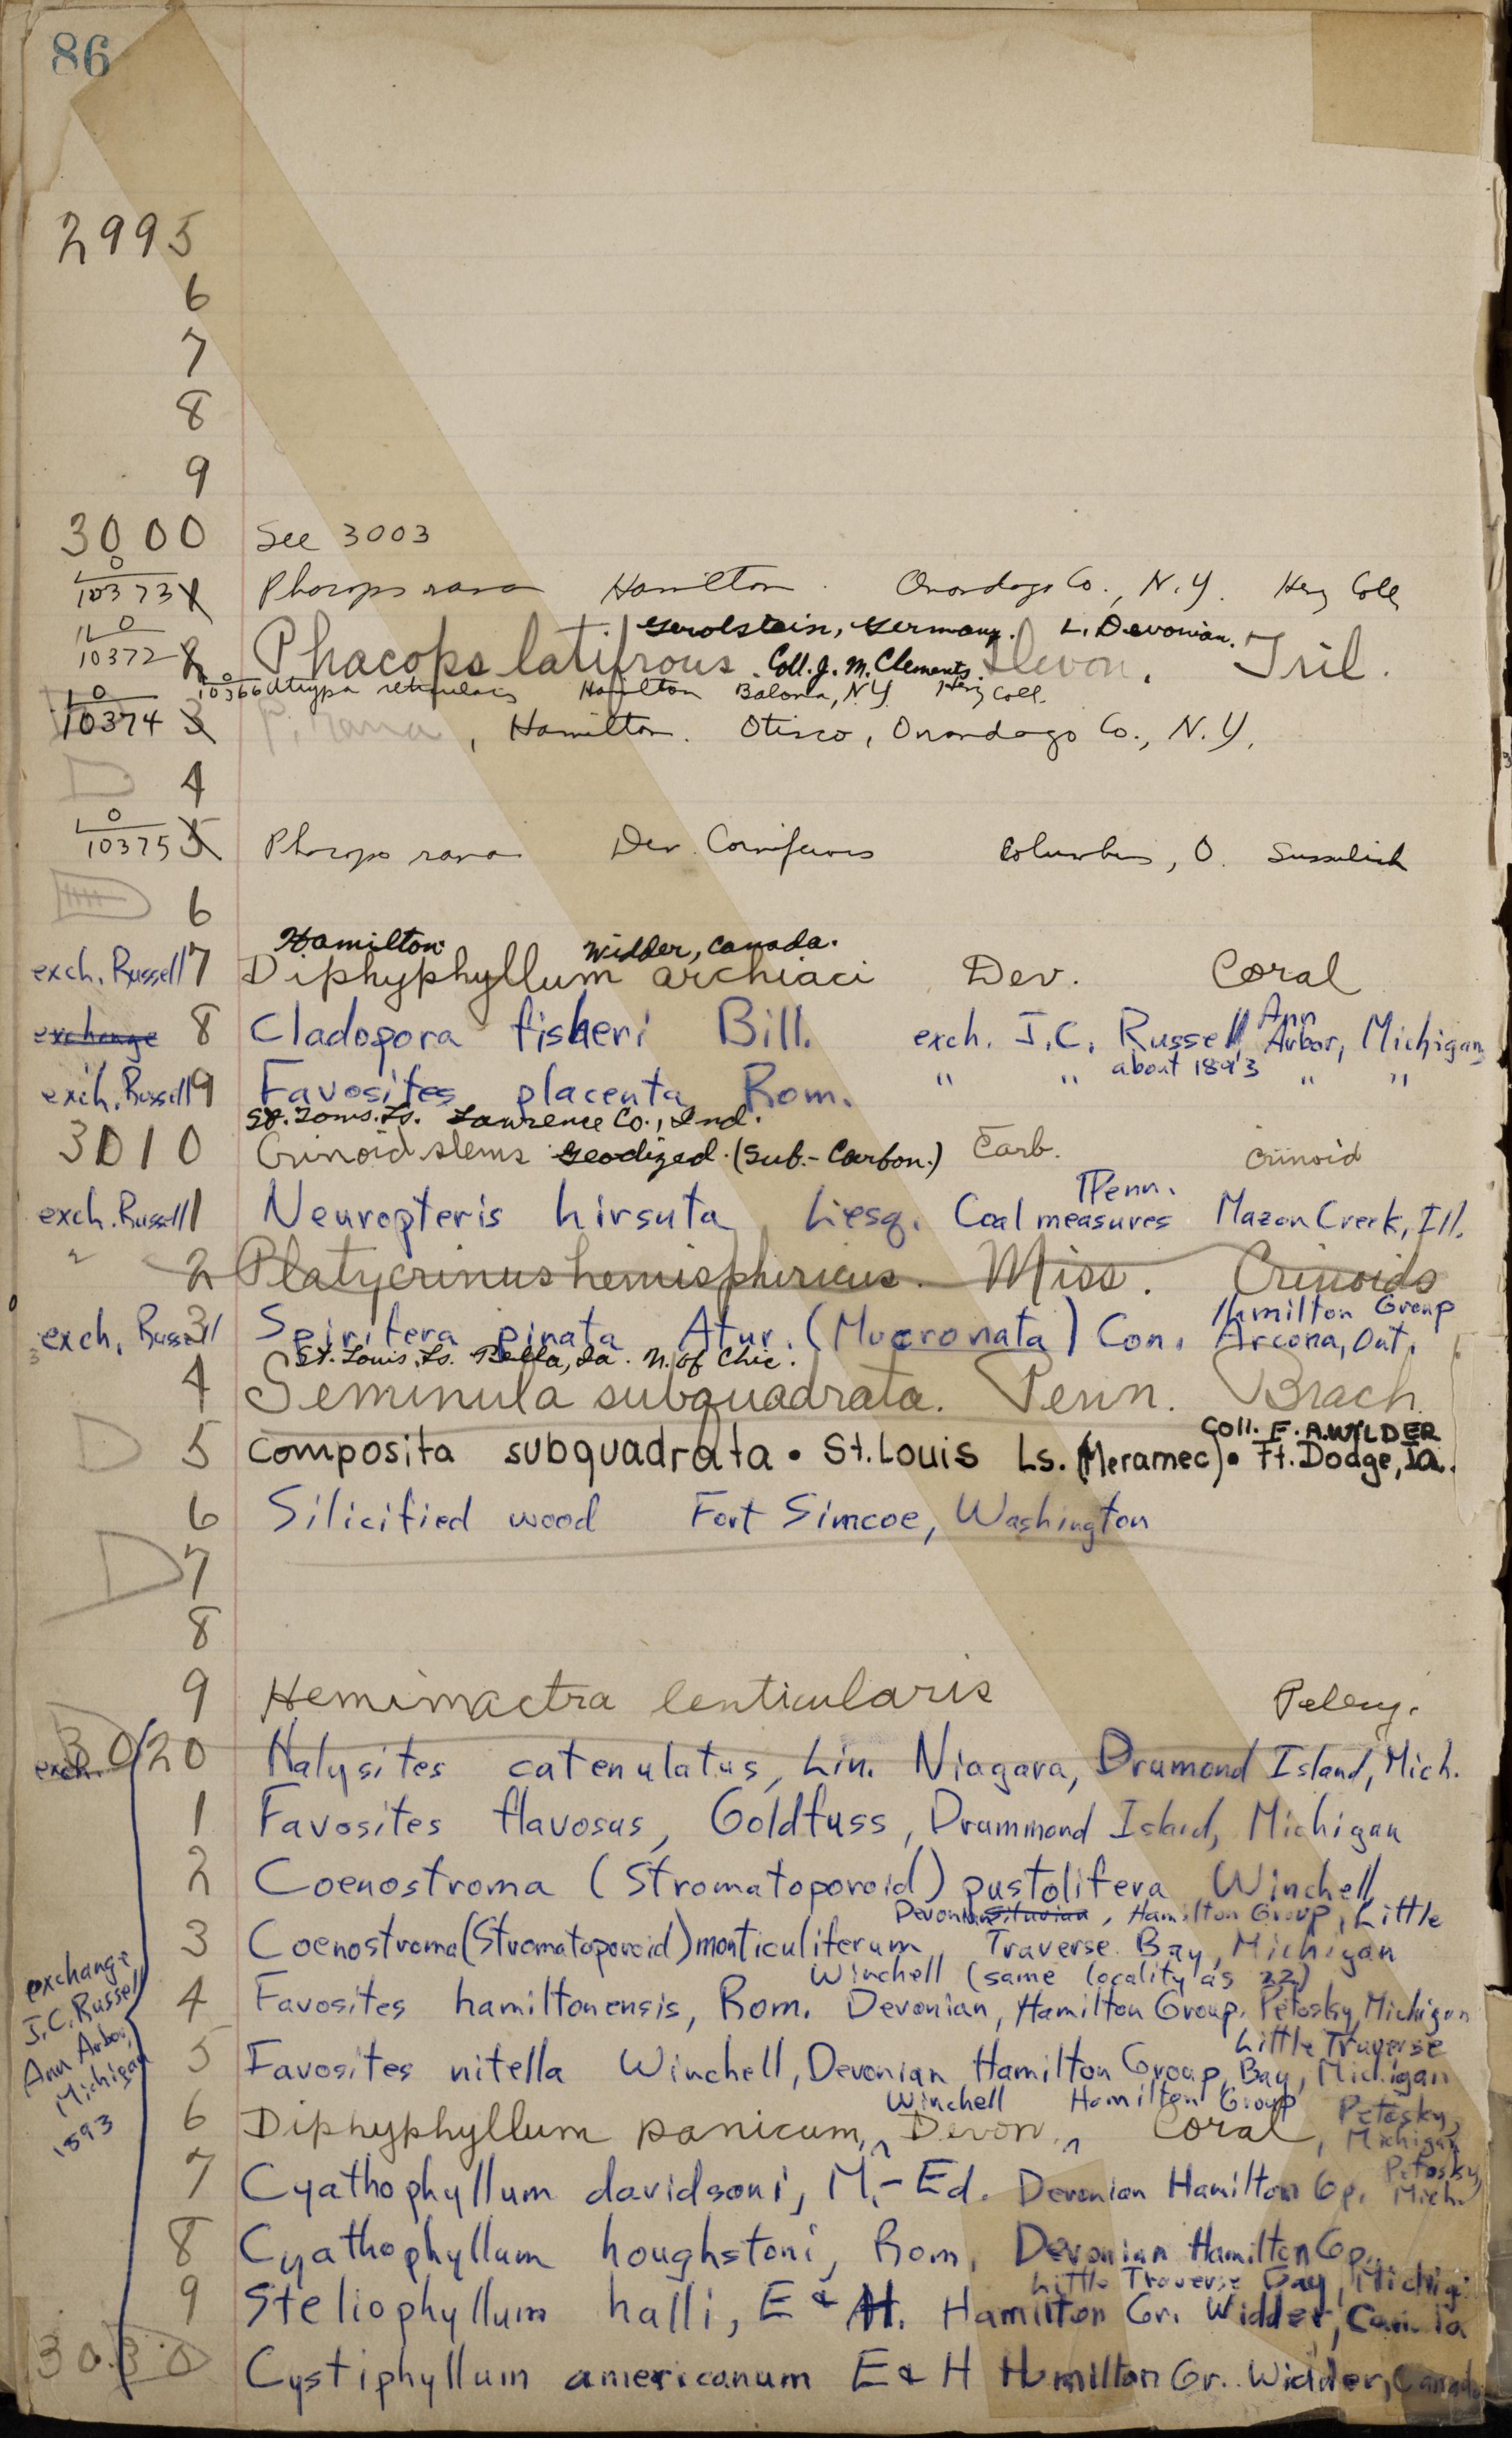 86
2995
6
7
8
9
3000 See 3003
10373 1 Phacops rana Hamilton. Onondaga Co., N.Y. Herz Coll
Gerolstein, Germany. L. Devonian.
10372 2 Phacops latifrous. Coll. J. M. Clements. Devon. Tril.
10366 Atrypa reticularis Hamilton Balona, N.Y. Herz Coll.
10374 3 P. rana, Hamilton. Otisco, Onondaga Co., N.Y.
D 4
10375 5 Phacops rana Dev. Corniferous Columbus, O.
6
Hamilton. Widder, Canada.
exch. Russell 7 Diphyphyllum archiaci Dev. Coral
exchange 8 Cladopora fisheri Bill. exch. J.C. Russell, Ann Arbor, Michigan
about 1893
exch. Russell 9 Favosites placenta Rom. " " " "
St. Louis. Ls. Lawrence Co., Ind.
3010 Crinoid stems Geodized. (Sub.-Carbon.) Carb. crinoid
Penn.
exch. Russell 1 Neuropteris hirsuta Liesq. Coal measures Mazon Creek, Ill.
" 2 Platycrinus hemisphericus. Miss. Crinoids
Hamilton Group
exch. Russell 3 Spirifera pinata Atur. (Mucronata) Con. Arcona, Ont.
St. Louis. Ls. Pella, Ia. N. of Chic.
4 Seminula subquadrata. Penn. Brach.
Coll. F. A. WILDER
D 5 Composita subquadrata. St. Louis Ls. (Meramec). Ft. Dodge, Ia.
6 Silicified wood Fort Simcoe, Washington
D 7
8
9 Hemimactra lenticularis Pelecy.
exch. 3020 Halysites catenulatus, Lin. Niagara, Drumond Island, Mich.
1 Favosites flavosus, Goldfuss, Drummond Island, Michigan
2 Coenostroma (Stromatoporoid) pustolifera Winchell
Devonian Silurian, Hamilton Group, Little
3 Coenostroma (Stromatoporoid) monticuliferum, Traverse Bay, Michigan
Winchell (same locality as 22)
4 Favosites hamiltonensis, Rom. Devonian, Hamilton Group. Petosky, Michigan
Little Traverse
5 Favosites nitella Winchell, Devonian Hamilton Group, Bay, Michigan
Winchell Hamilton Group
6 Diphyphyllum panicum, Devon., Coral, Petosky, Michigan
7 Cyathophyllum davidsoni, M.-Ed. Devonian Hamilton Gp. Petosky, Mich.
8 Cyathophyllum houghstoni, Rom. Devonian Hamilton Gp.
Little Traverse Bay, Michig.
9 Steliophyllum halli, E & H. Hamilton Gr. Widder, Canada
3030 Cystiphyllum americanum E & H Hamilton Gr. Widder, Canada
exchange
J.C. Russell
Ann Arbor
Michigan
1893